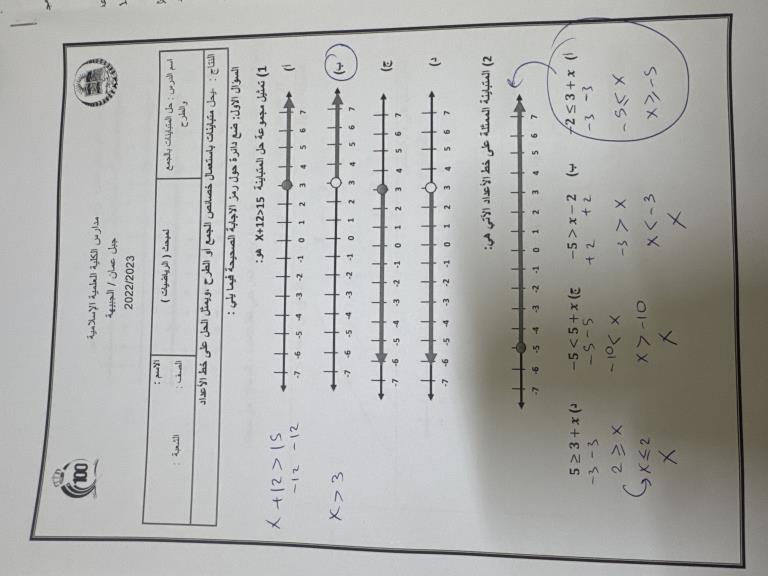 مدارس الكلية العلمية الاسلامية
جبل عمان / الجبيهة
2022/2023
100
اسم الدرس : حل المتباينات بالجمع والطرح
لمبحث ( الرياضيات )
الاسم :
الصف :
الشعبة :
النتاج : يحل متباينات باستعمال خصائص الجمع او الطرح ،ويمثل الحل على خط الأعداد
السؤال الاول: ضع دائرة حول رمز الاجابة الصحيحة فيما يلي :
1) تمثيل مجموعة حل المتباينة X+12>15 هو:
x + 12 > 15
-12 -12
x > 3
أ)
-7 -6 -5 -4 -3 -2 -1 0 1 2 3 4 5 6 7
ب)
-7 -6 -5 -4 -3 -2 -1 0 1 2 3 4 5 6 7
ج)
-7 -6 -5 -4 -3 -2 -1 0 1 2 3 4 5 6 7
د)
-7 -6 -5 -4 -3 -2 -1 0 1 2 3 4 5 6 7
2) المتباينة الممثلة على خط الأعداد الآتي هي:
-7 -6 -5 -4 -3 -2 -1 0 1 2 3 4 5 6 7
أ) -2 ≤ 3 + x
-3 -3
-5 ≤ x
x ≥ -5
ب) -5 > x - 2
+2 +2
-3 > x
x < -3
x
ج) -5 < 5 + x
-5 -5
-10 < x
x > -10
x
د) 5 ≥ 3 + x
-3 -3
2 ≥ x
x ≤ 2
x